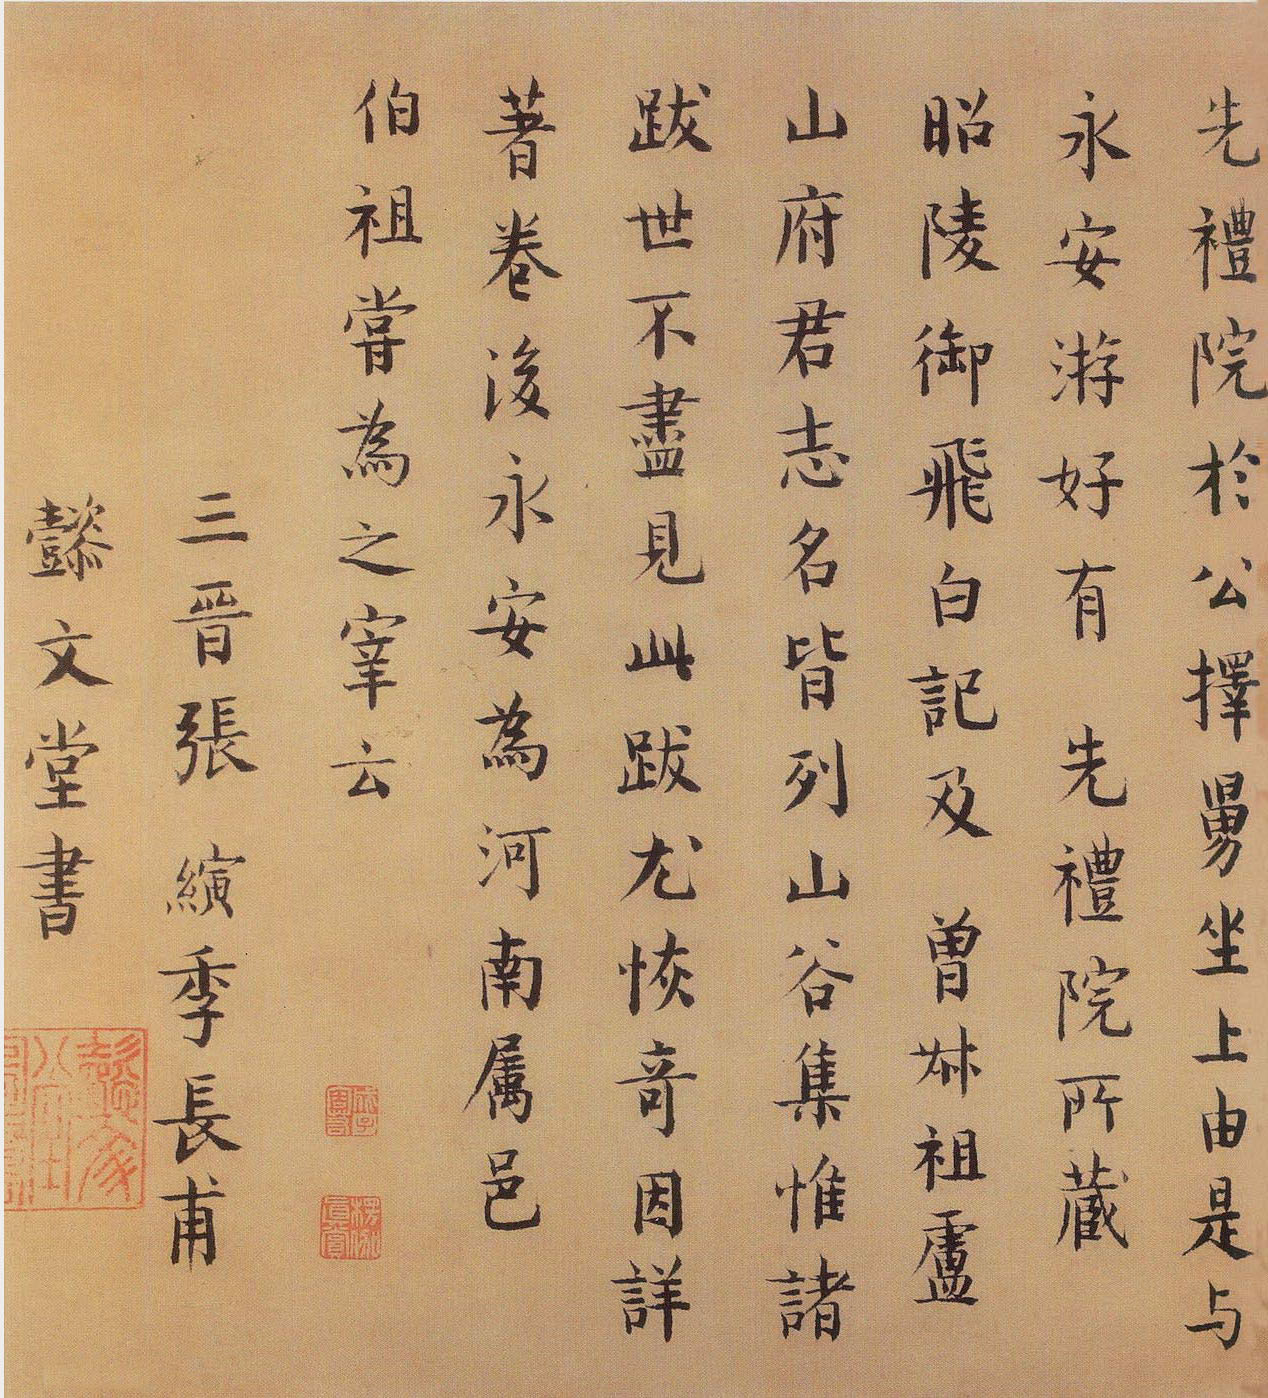 先禮院於公擇舅坐上由是与
永安游好有　先禮院所藏
昭陵御飛白記及　曾叔祖盧
山府君志名皆列山谷集惟諸
跋世不盡見此跋尤恢奇因詳
著卷後永安為河南属邑
伯祖嘗為之宰云
三晉張　縯季長甫
懿文堂書